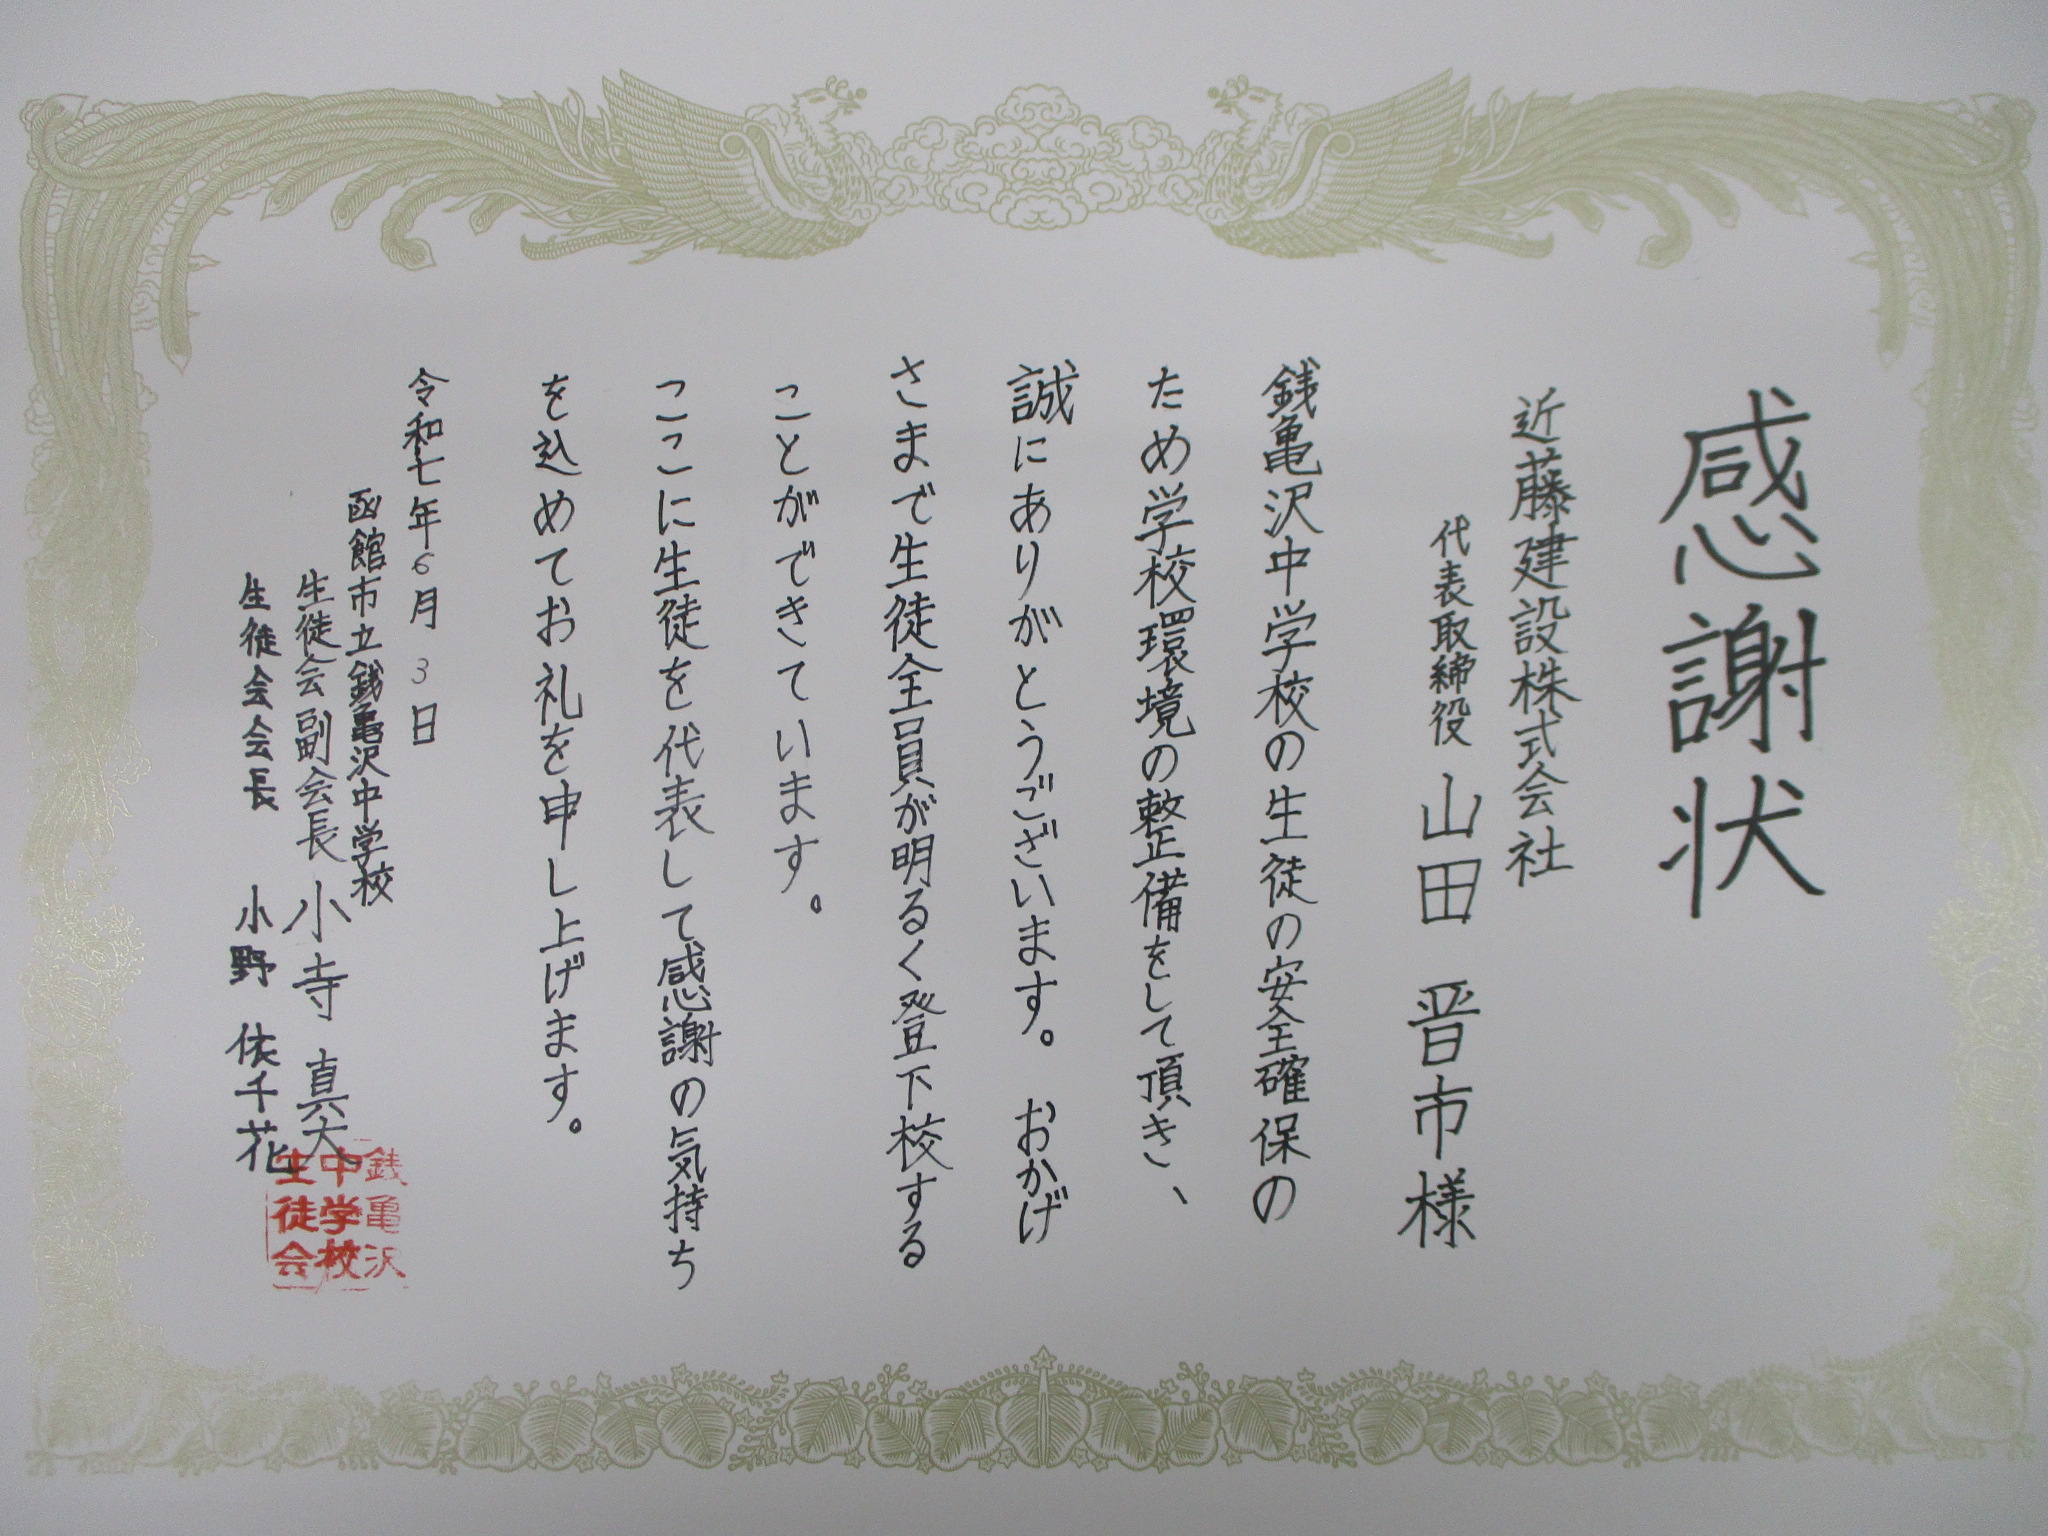 感謝状
近藤建設株式会社
代表取締役 山田 晋市様
銭亀沢中学校の生徒の安全確保の
ため学校環境の整備をして頂き、
誠にありがとうございます。おかげ
さまで生徒全員が明るく登下校する
ことができています。
ここに生徒を代表して感謝の気持ち
を込めてお礼を申し上げます。
令和七年6月3日
函館市立銭亀沢中学校
生徒会副会長 小寺 真大
生徒会会長 小野 依千花
銭亀沢
中学校
生徒会